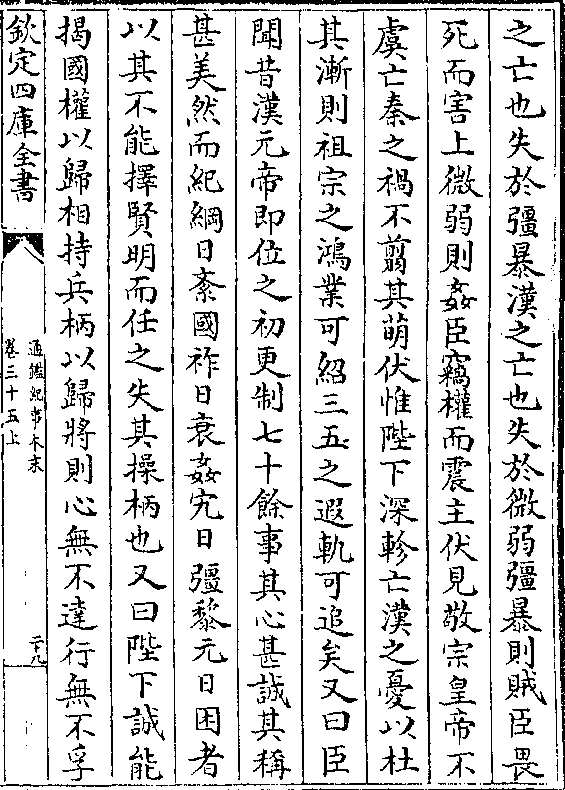 之亡也失於彊暴漢之亡也失於微弱彊暴則賊臣畏
死而害上微弱則姦臣竊權而震主伏見敬宗皇帝不
虞亡秦之禍不翦其萌伏惟陛下深軫亡漢之憂以杜
其漸則祖宗之鴻業可紹三五之遐軌可追矣又曰臣
聞昔漢元帝即位之初更制七十餘事其心甚誠其稱
甚美然而紀綱日紊國祚日衰姦宄日彊黎元日困者
以其不能擇賢明而任之失其操柄也又曰陛下誠能
揭國權以歸相持兵柄以歸將則心無不達行無不孚
欽定四庫全書
通鑑紀事本末
卷三十五上
二十九